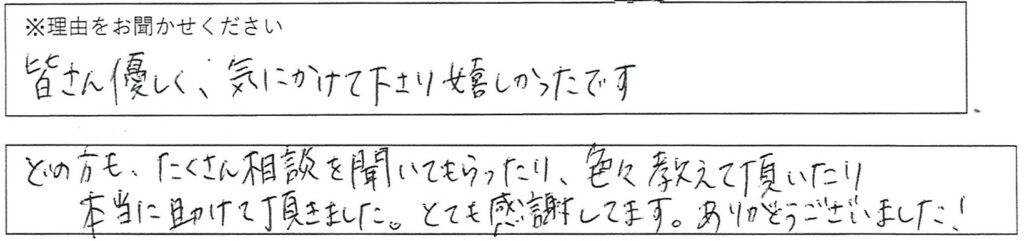 ※理由をお聞かせください
皆さん優しく、気にかけて下さり嬉しかったです
どの方も、たくさん相談を聞いてもらったり、色々教えて頂いたり
本当に助けて頂きました。とても感謝してます。ありがとうございました!